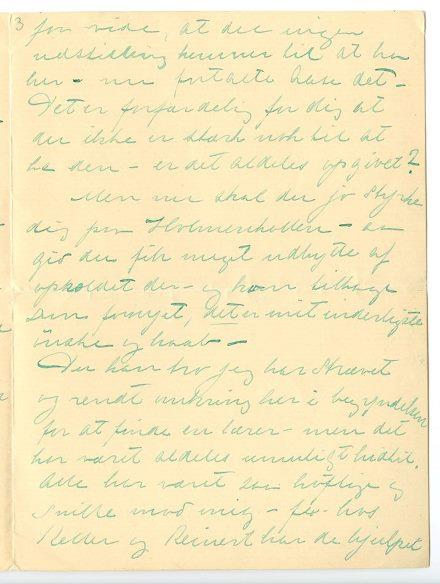 3
for vide, at du ingen
udstilling kommer til at ha
her - nu fortalte Aase det -
Det er forfærdelig for dig at
du ikke er stærk nok til at
ha den - er det aldeles opgivet?
Men nu skal du jo styrke
dig paa Holmenkollen - aa
gid du fik meget udbytte af
opholdet der - og kom tilbage
som fornyet, det er mit inderligste
ønske og haab -
Du kan tro jeg har strævet
og rendt omkring her i begyndelsen
for at finde en lærer - men det
har været aldeles umuligt hidtil.
Alle har været saa høflige og
snille mod mig - hos
Keller og Reinert har de hjulpet